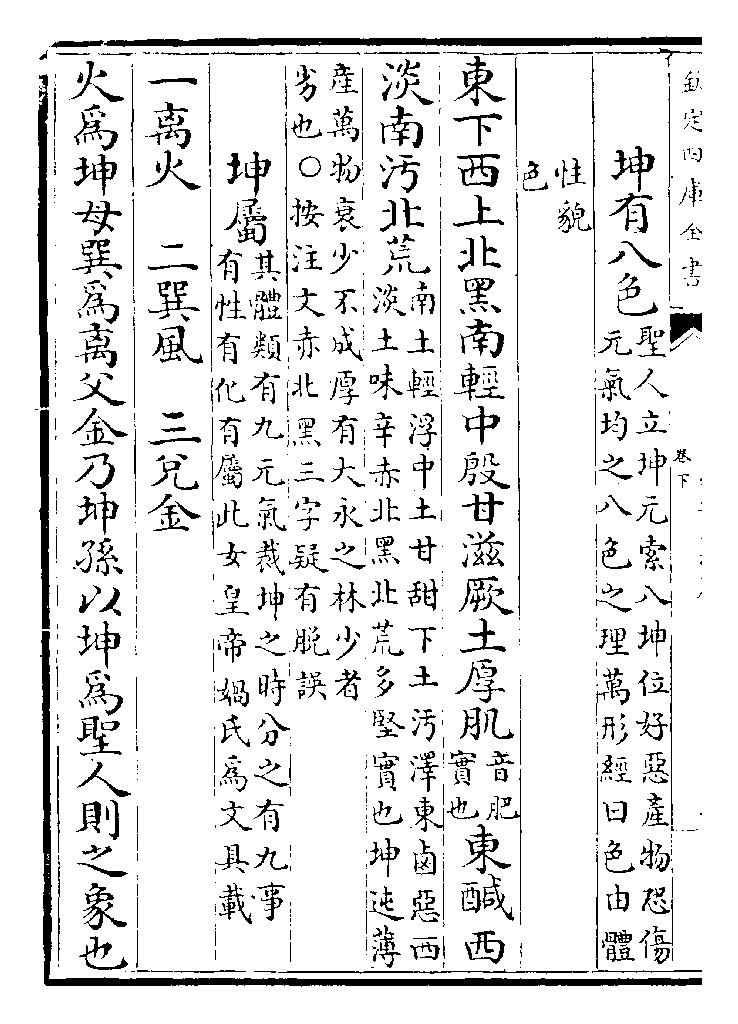 欽定四庫全書
卷下
坤有八色聖人立坤元索八坤位好惡產物恐傷
元氣均之八色之理萬形經曰色由體
性貌
色
東下西上北黑南輕中殷甘滋厥土厚肌音肥
實也東醎西
淡南污北荒南土輕浮中土甘甜下土污澤東鹵惡西
淡土味辛赤北黑北荒多堅實也坤迍薄
產萬物衰少不成厚有大永之林少者
劣也○按注文赤北黑三字疑有脫誤
坤屬其體類有九元氣裁坤之時分之有九事
有性有化有屬此女皇帝媧氏為文具載
一离火 二巽風 三兌金
火為坤母巽為离父金乃坤孫以坤為聖人則之象也